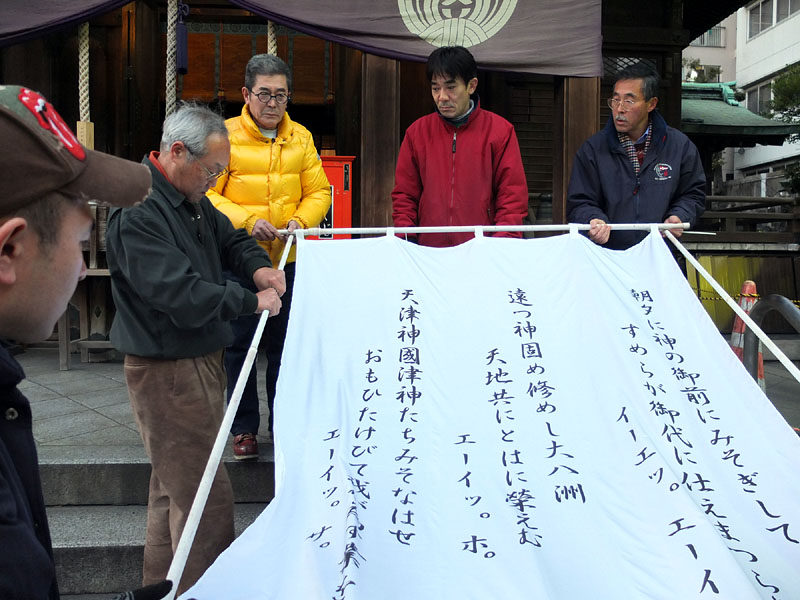 朝夕に神の御前にみそぎして
すめらが御代に仕えまつら
イーエツ。エーイ
遠つ神固め修めし大八洲
天地共にとはに榮えむ
エーイツ。ホ。
天津神國津神たちみそなはせ
おもひたけびて我が
エーイツ。サ。